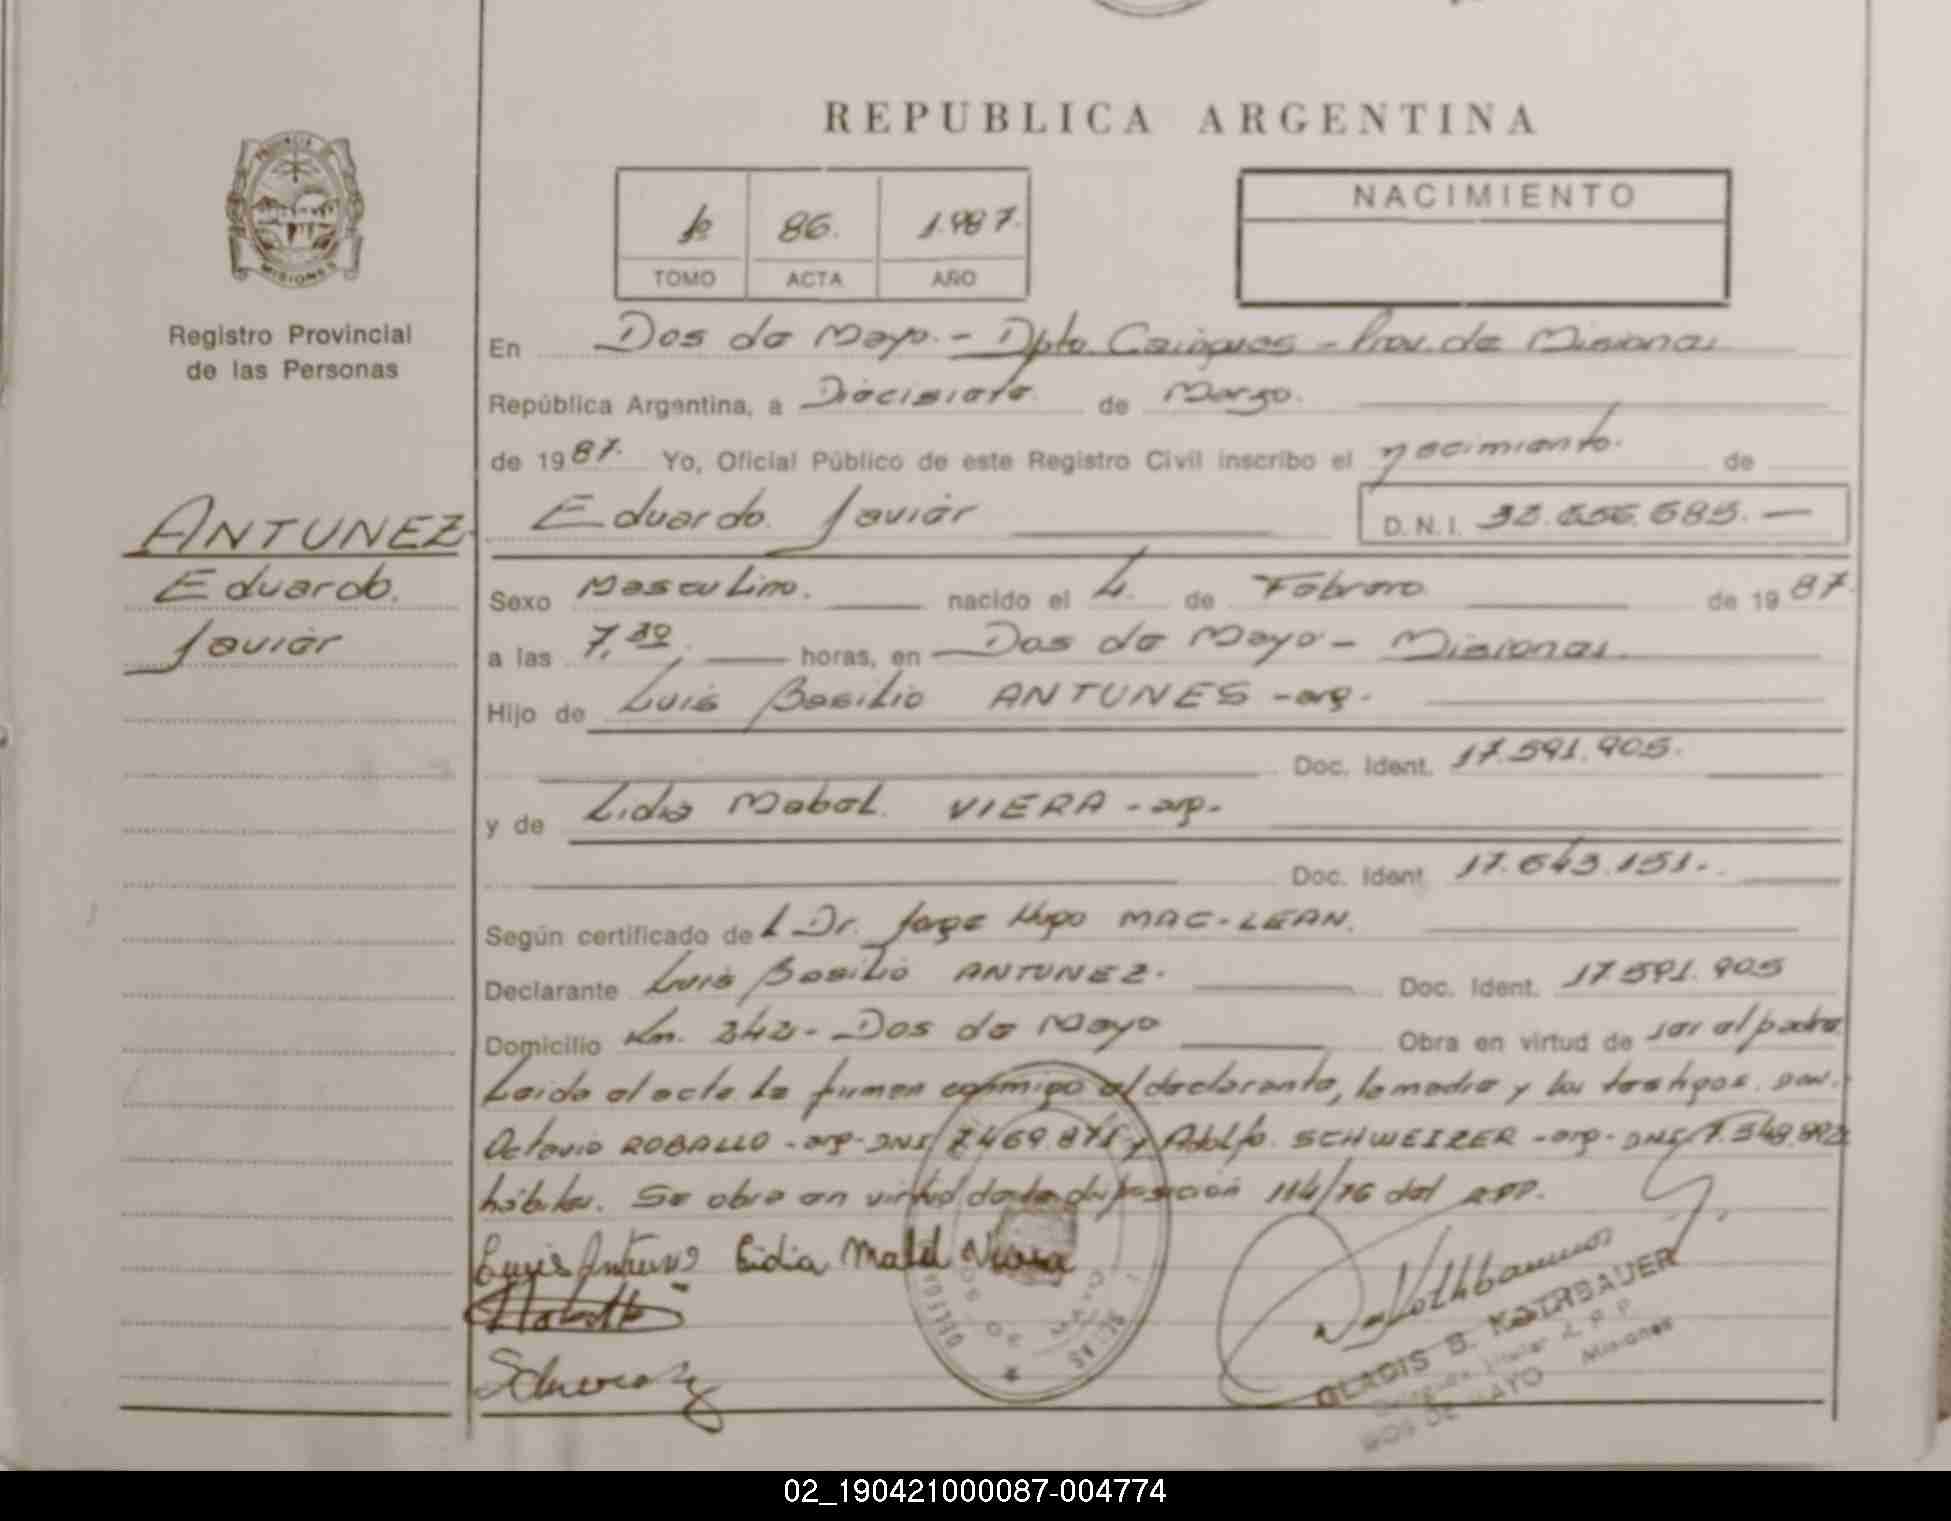 REPUBLICA ARGENTINA
PROVINCIA DE
MISIONES
Registro Provincial
de las Personas
1º 86. 1.987.
TOMO ACTA AÑO
NACIMIENTO
En Dos de Mayo. - Dpto. Cainguas - Prov. de Misiones
República Argentina, a Diecisiete de Marzo.
de 1987. Yo, Oficial Público de este Registro Civil inscribo el nacimiento. de
ANTUNEZ
Eduardo.
Javier
Eduardo. Javier D.N.I. 32.656.685. —
Sexo Masculino. nacido el 4. de Febrero de 1987.
a las 7,30. horas, en Dos de Mayo - Misiones.
Hijo de Luis Basilio ANTUNES - arg.
Doc. Ident. 17.591.905.
y de Lidia Mabel. VIERA - arg.
Doc. Ident. 17.643.151.
Según certificado del Dr. Jorge Hugo MAC-LEAN.
Declarante Luis Basilio ANTUNEZ. Doc. Ident. 17.591.905
Domicilio Km. 242 - Dos de Mayo Obra en virtud de ser el padre
Leida el acta la firman conmigo el declarante, la madre y los testigos. Don.
Octavio ROBALLO - arg - DNI 7.469.871 y Adolfo. SCHWEIZER - arg - DNI
hábiles. Se obra en virtud de la disposición 114/76 del RPP.
Luis Antunes Lidia Mabel Viera
DELEGA
DOS DE MAYO
GLADIS B. KOTHBAUER
Titular R. P. P.
DOS DE MAYO Misiones
02_190421000087-004774